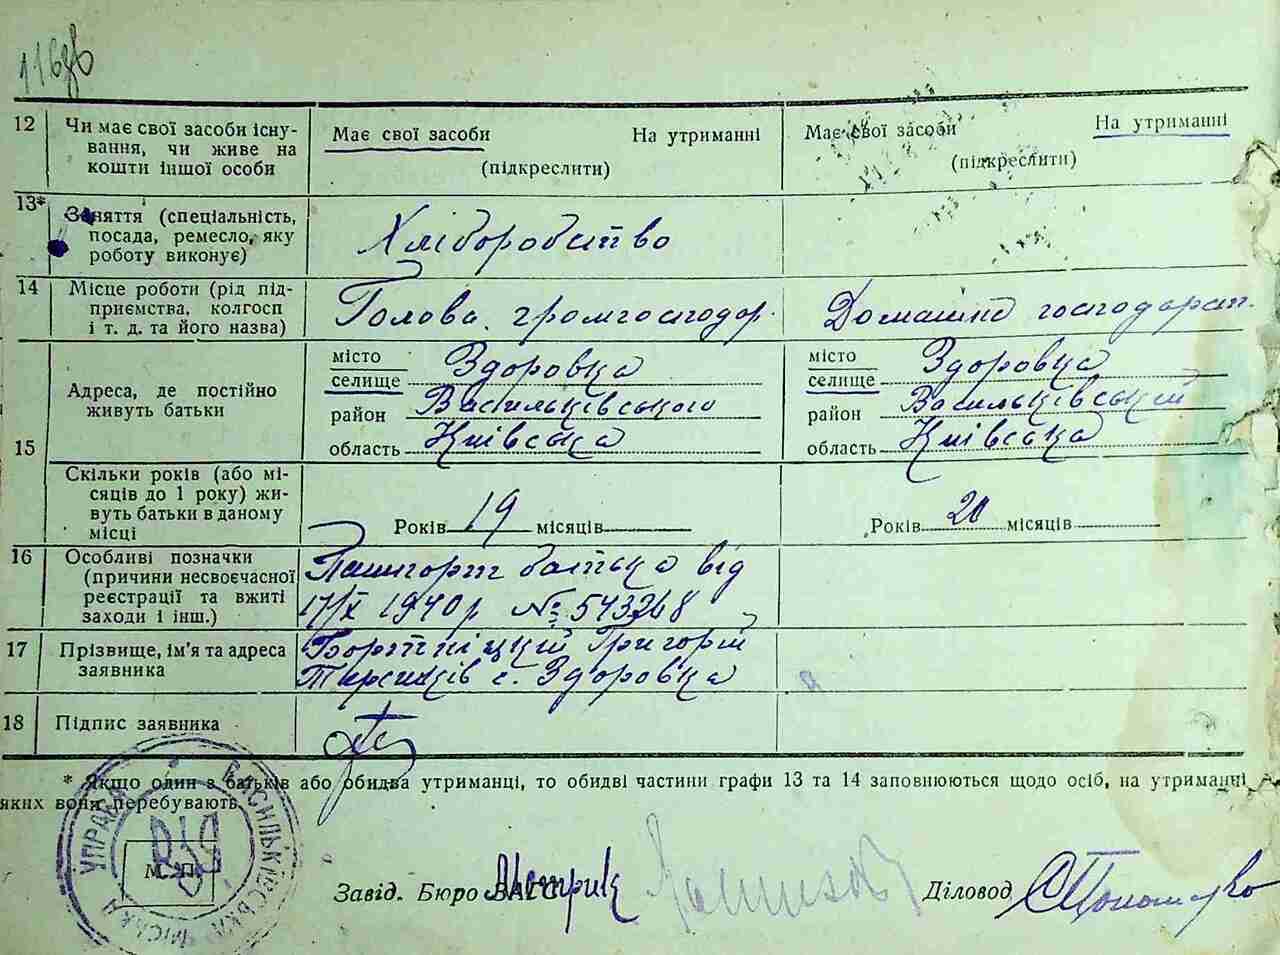 116зв
12 Чи має свої засоби існу- Має свої засоби На утриманні Має свої засоби На утриманні
вання, чи живе на (підкреслити) (підкреслити)
кошти іншої особи
13* Заняття (спеціальність, Хліборобство
посада, ремесло, яку
роботу виконує)
14 Місце роботи (рід під- Голова громгосподор. Домашнє господарст.
приємства, колгосп
і т. д. та його назва)
15 Адреса, де постійно
живуть батьки
місто Здоровка місто Здоровка
селище селище
район Васильківського район Васильківський
область Київська область Київська
Скільки років (або мі-
сяців до 1 року) жи-
вуть батьки в даному
місці
Років 19 місяців Років 20 місяців
16 Особливі позначки Пашпорт батька від
(причини несвоєчасної 17/X 1940р № 543268
реєстрації та вжиті
заходи і інш.)
17 Прізвище, ім'я та адреса Григорій
заявника с. Здоровка
18 Підпис заявника
* Якщо один з батьків або обидва утриманці, то обидві частини графи 13 та 14 заповнюються щодо осіб, на утриманні
яких вони перебувають.
УПРАВА ВАСИЛЬКІВСЬКА МІСЬКА
М. П.
Завід. Бюро ЗАГС Метрик Діловод